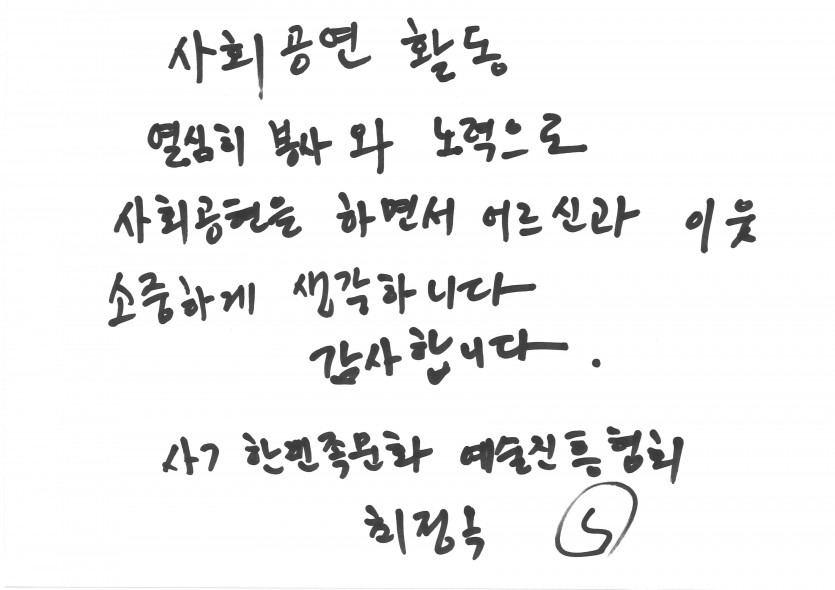 사회공연 활동
열심히 봉사와 노력으로
사회공헌을 하면서 어르신과 이웃
소중하게 생각하니다
감사합니다.
사) 한민족문화 예술진흥협회
최정옥